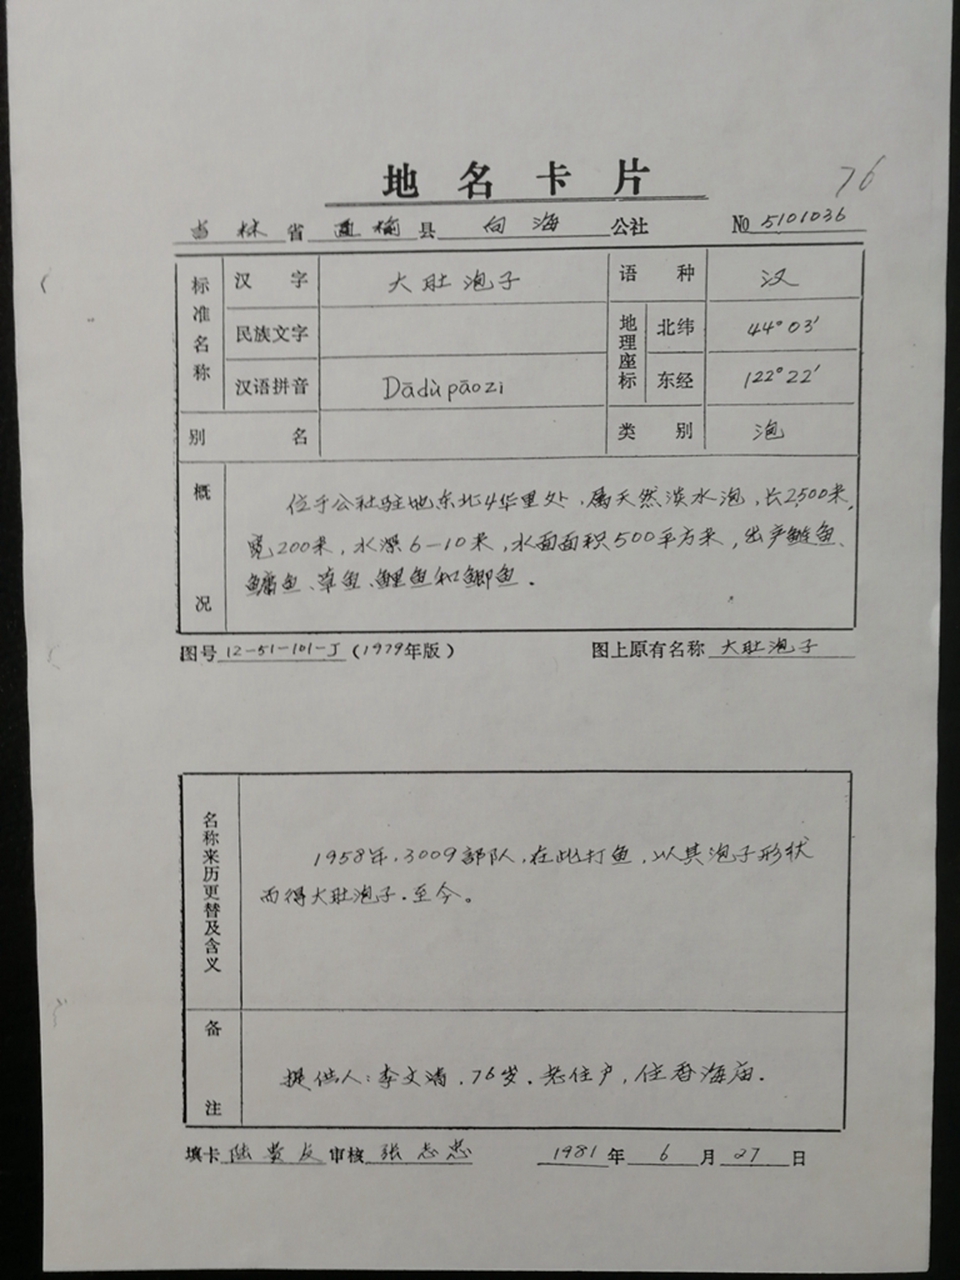 地名卡片
76
吉林省通榆县向海公社 No 5101036
标准名称
汉字 大肚泡子 语种 汉
民族文字 地理座标 北纬 44°03′
汉语拼音 Dādù pāozi 东经 122°22′
别名 类别 泡
概况
位于公社驻地东北4华里处，属天然淡水泡，长2500米，
宽200米，水深6-10米，水面面积500平方米，出产鲢鱼、
鳙鱼、草鱼、鲤鱼和鲫鱼.
图号 12-51-101-J (1979年版) 图上原有名称 大肚泡子
名称来历更替及含义
1958年，3009部队，在此打鱼，以其泡子形状
而得大肚泡子.至今。
备注
提供人：李文清，76岁.老住户，住香海庙.
填卡 陆贵友 审核 张志忠 1981年6月27日